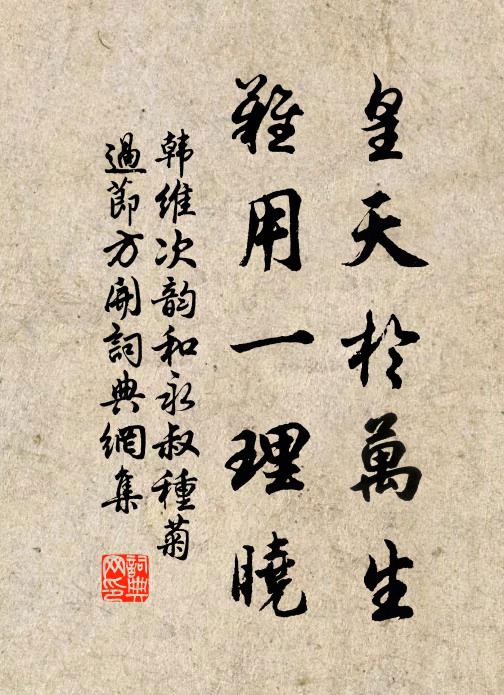 皇天於萬生
難用一理曉
韩維次韵和永叔種菊
過節方開詞典網集
詞典
网印